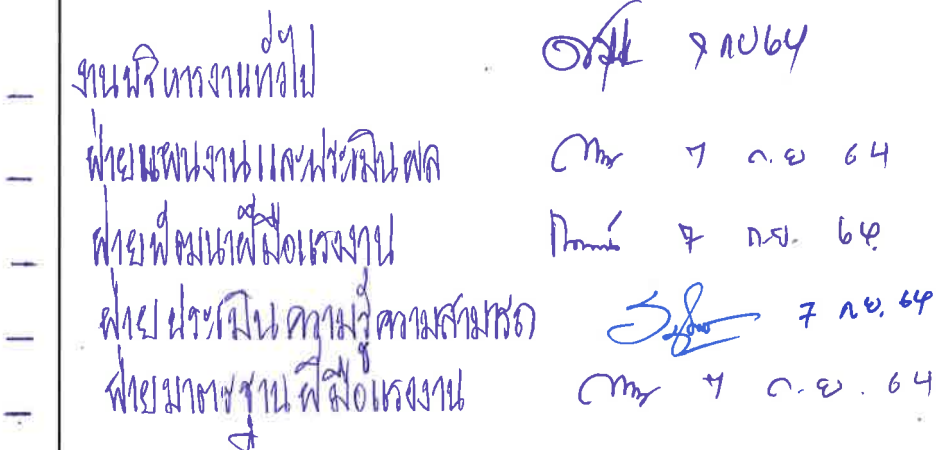 งานบริหารงานทั่วไป 9 กย 64
ฝ่ายแผนงานและประเมินผล 7 ก.ย 64
ฝ่ายพัฒนาฝีมือแรงงาน 7 ก.ย. 64
ฝ่ายประเมินความรู้ความสามารถ 7 กย. 64
ฝ่ายมาตรฐานฝีมือแรงงาน 7 ก.ย. 64